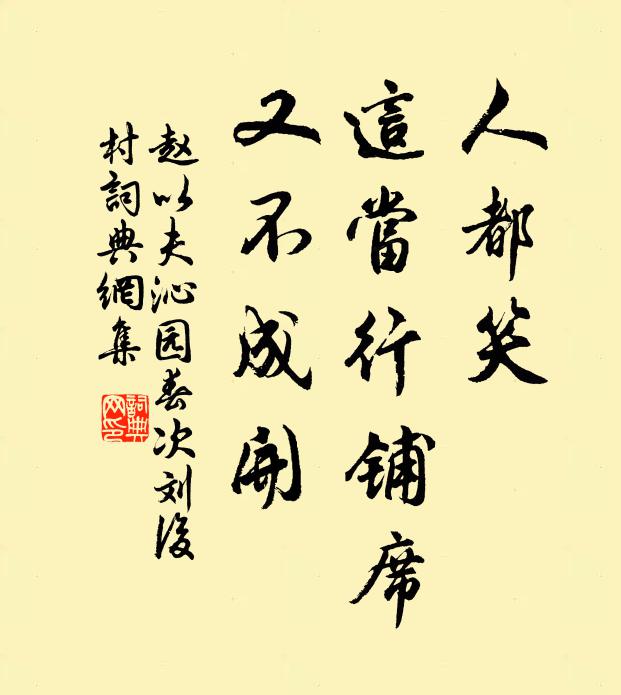 人都笑
這當行鋪席
又不成開
赵以夫沁园春次刘後
村詞典網集
詞典
网印